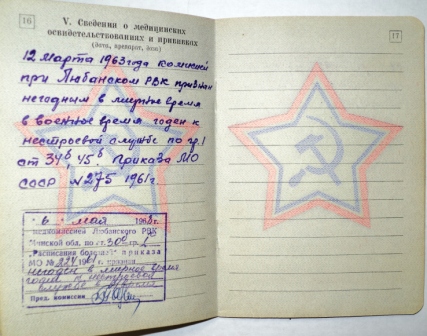 16
V. Сведения о медицинских
освидетельствованиях и прививках
(дата, препарат, доза)
12 марта 1963 года комиссией
при Любанском РВК признан
негодным в мирное время
в военное время годен к
нестроевой службе по гр. I
ст 34б, 45б Приказа МО
СССР N 275 1961 г.
"6" мая 1968 г.
медкомиссией Любанского РВК
Минской обл. по ст. 30
"Расписания болезней" приказа
МО № 224 1966 г. признан
негоден в мирное время
годен к нестроевой
службе в
Пред. комиссии
17